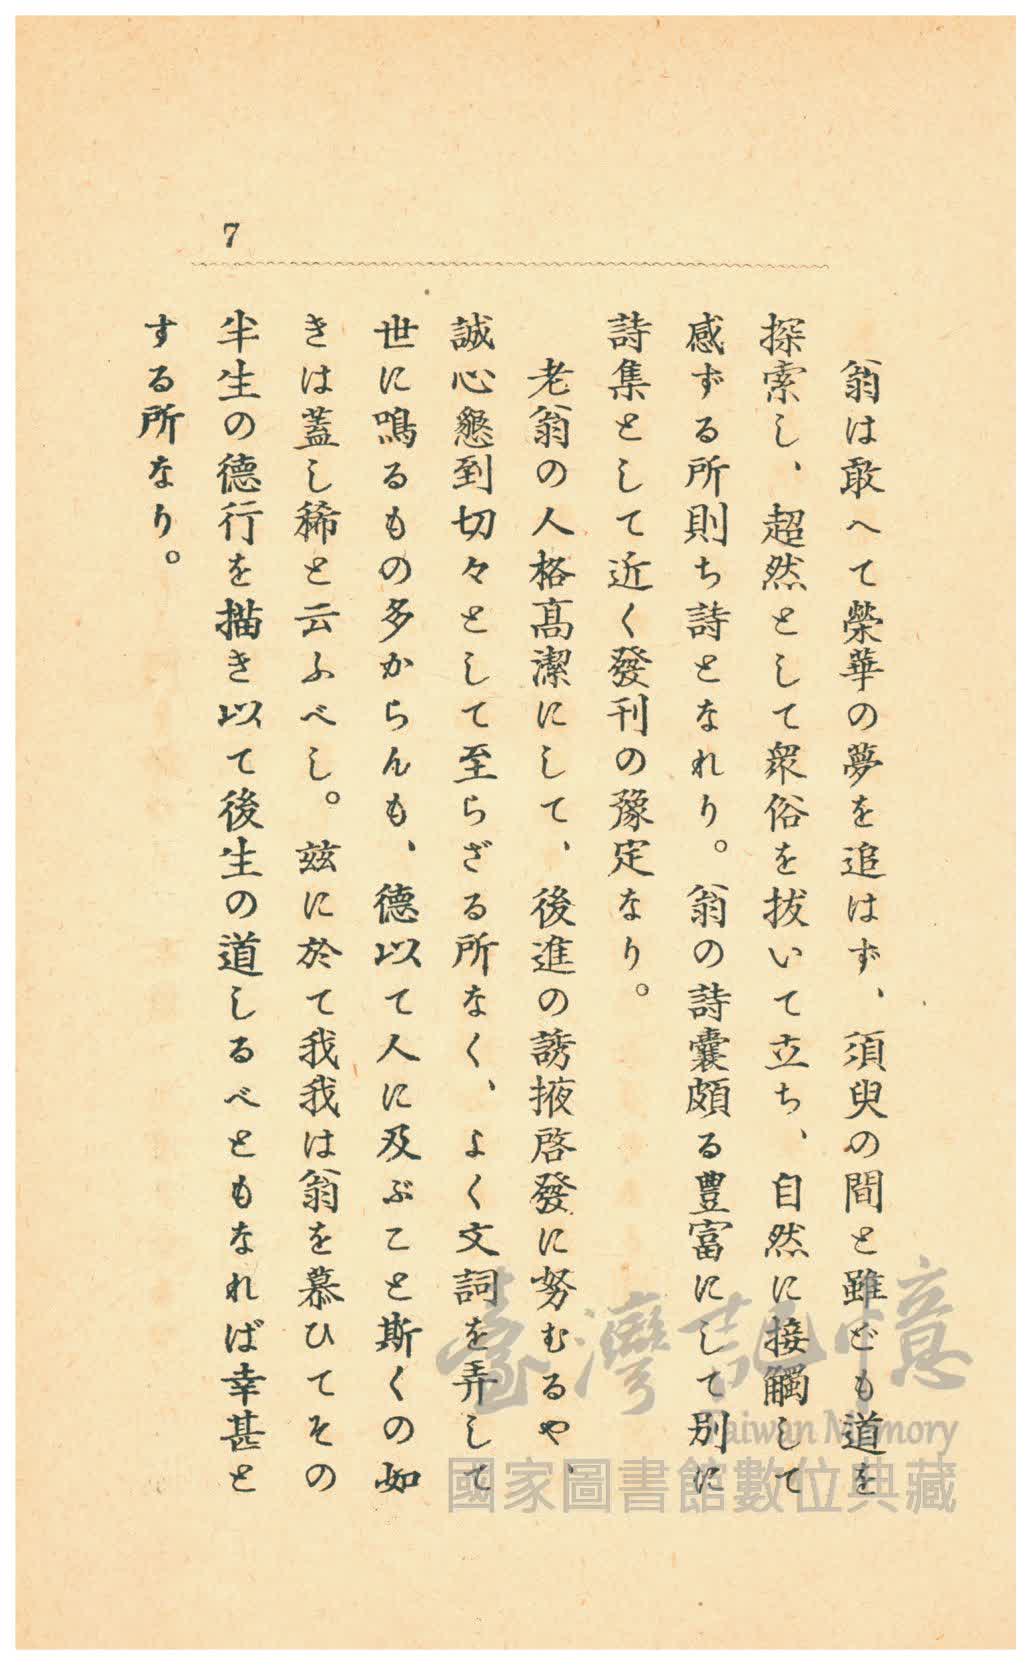 7
翁は敢へて榮華の夢を追はず、須臾の間と雖ども道を
探索し、超然として衆俗を拔いて立ち、自然に接觸して
感ずる所則ち詩となれり。翁の詩囊頗る豊富にして別に
詩集として近く發刊の豫定なり。
老翁の人格髙潔にして、後進の誘掖啓發に努むるや、
誠心懇到切々として至らざる所なく、よく文詞を弄して
世に鳴るもの多からんも、德以て人に及ぶこと斯くの如
きは蓋し稀と云ふべし。玆に於て我我は翁を慕ひてその
半生の德行を描き以て後生の道しるべともなれば幸甚と
する所なり。
臺灣記憶
Taiwan Memory
國家圖書館數位典藏